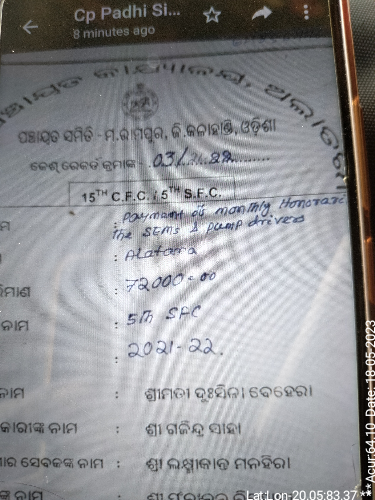 Cp Padhi Si...
8 minutes ago
ପଞ୍ଚାୟତ କାର୍ଯ୍ୟାଳୟ,
ପଞ୍ଚାୟତ ସମିତି - ମ.ରାମପୁର, ଜି.କଳାହାଣ୍ଡି, ଓଡ଼ିଶା
କେଶ୍ ରେକଡ କ୍ରମାଙ୍କ - 03/21-22
15TH C.F.C. / 5TH S.F.C.
ମ : payment of monthly Honorari
the SEMs & pump drivers
: Alatara
ମାଣ : 72000=00
ନାମ : 5th SFC
: 2021-22.
ନାମ : ଶ୍ରୀମତୀ ଦୁଃସିନା ବେହେରା
କାରୀଙ୍କ ନାମ : ଶ୍ରୀ ଗଜିନ୍ଦ୍ର ସାହା
ସେବକଙ୍କ ନାମ : ଶ୍ରୀ ଲକ୍ଷ୍ମୀକାନ୍ତ ମନହିରା
ଙ୍କ ନାମ : ଶ୍ରୀ
Lat:Lon-20.05:83.37 *** Acur:64.10 Date: 18-05-2023